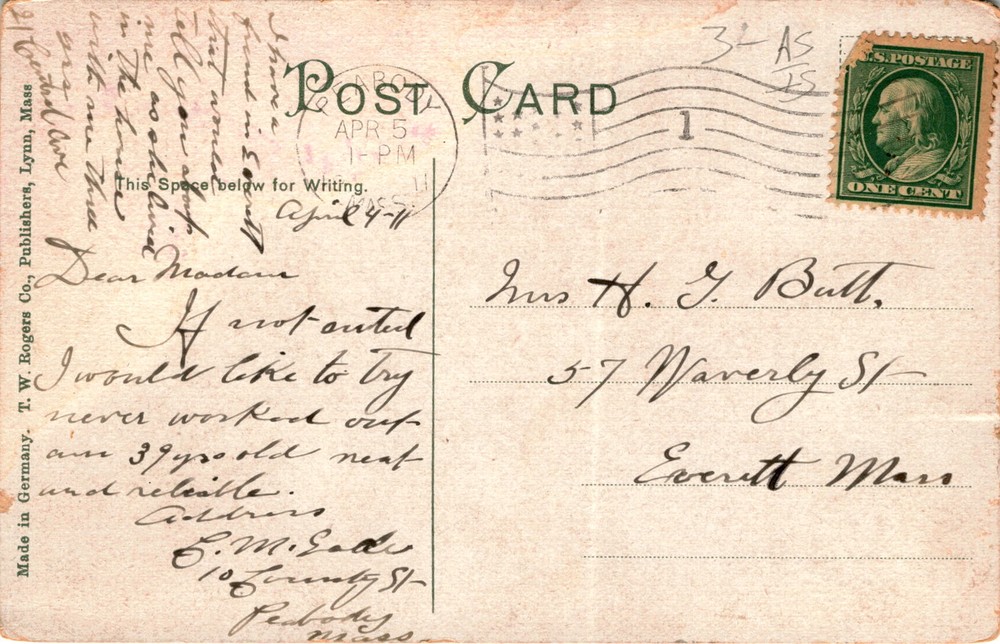 POST CARD
This Space below for Writing.
April 4-11
Dear Madam
If not suited
I would like to try
never worked out
am 39 yrs old neat
and reliable.
Address
10 County St
Peabody
Mass.
I have a
friend in Everett
that would
tell you
me as she lived
in the house
with me three
yrs
PEABODY
APR 5
1-PM
11
MASS.
1
3- AS
IS
U.S. POSTAGE
ONE CENT
Mrs H. G. Butt.
57 Waverly St
Everett Mass
Made in Germany. T. W. Rogers Co., Publishers, Lynn, Mass